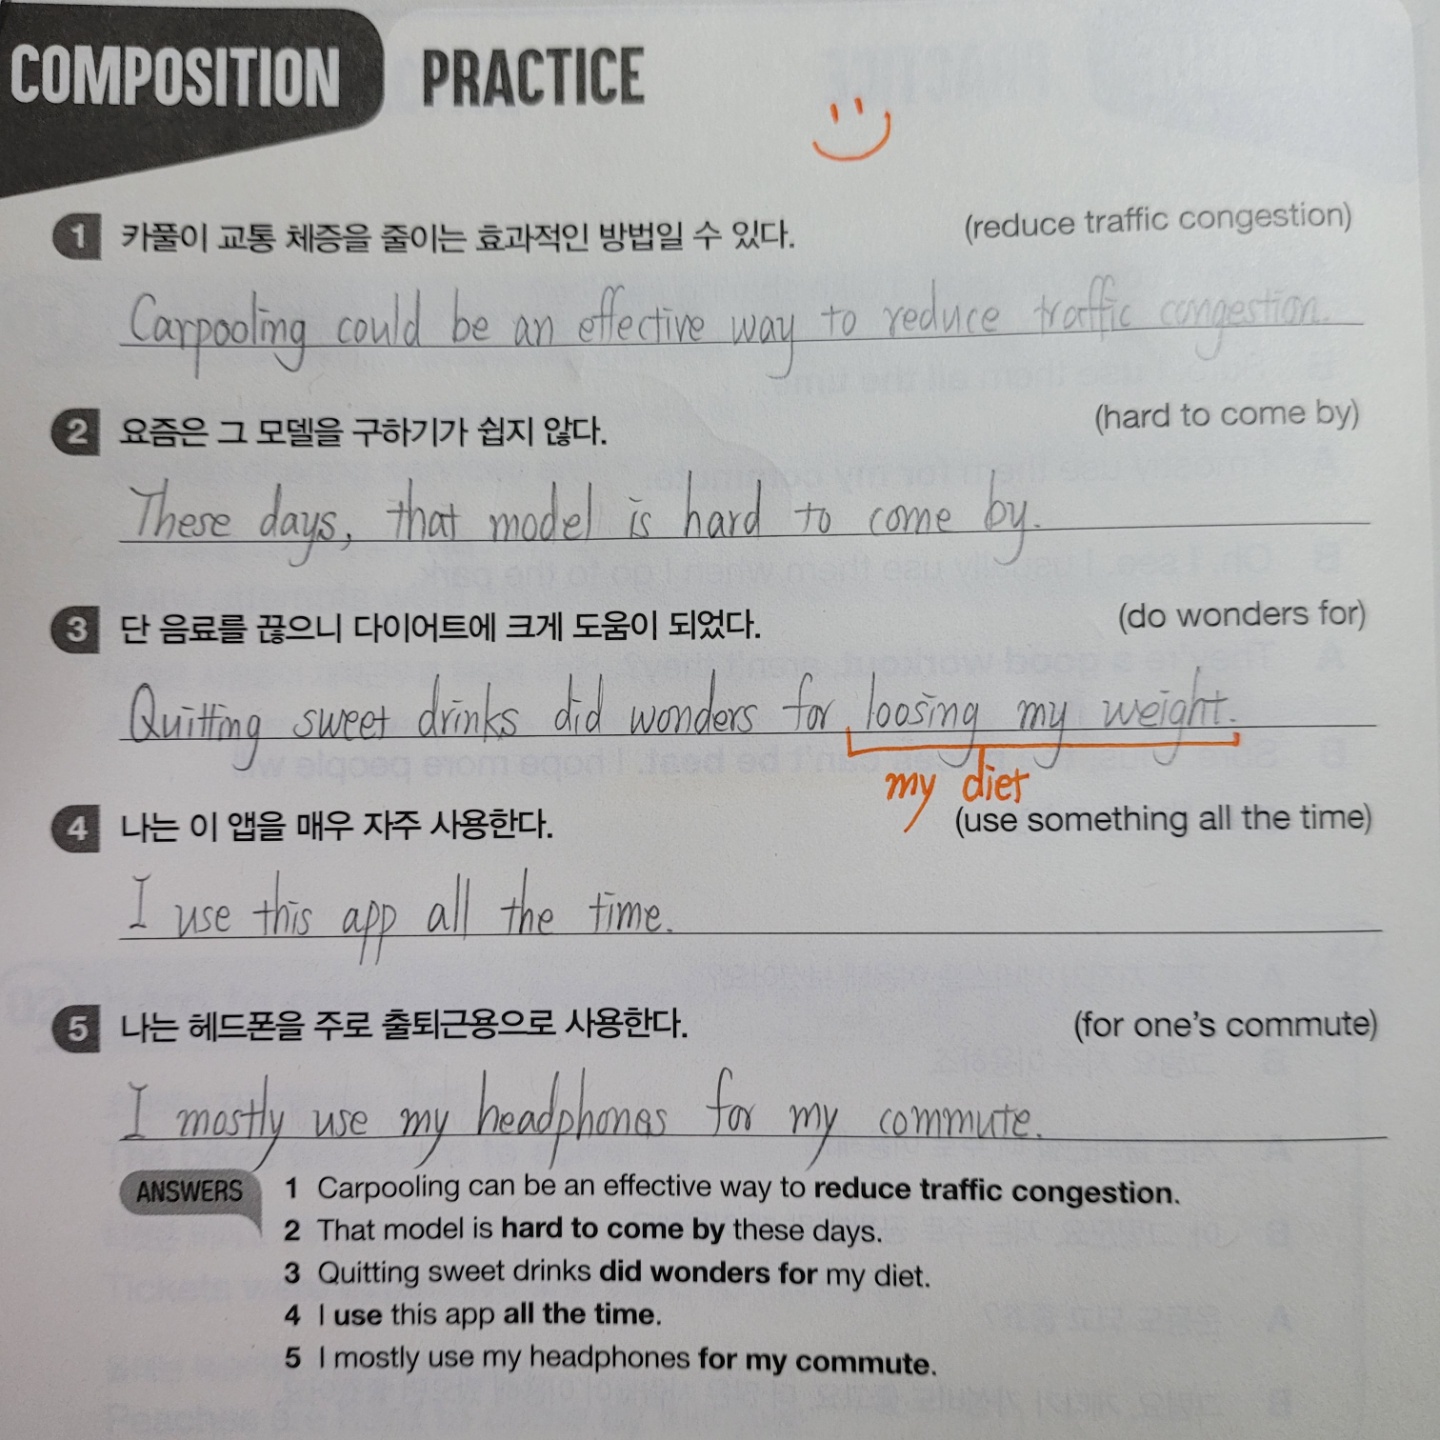 COMPOSITION PRACTICE
1 카풀이 교통 체증을 줄이는 효과적인 방법일 수 있다. (reduce traffic congestion)
Carpooling could be an effective way to reduce traffic congestion.
2 요즘은 그 모델을 구하기가 쉽지 않다. (hard to come by)
These days, that model is hard to come by.
3 단 음료를 끊으니 다이어트에 크게 도움이 되었다. (do wonders for)
Quitting sweet drinks did wonders for loosing my weight.
my diet
4 나는 이 앱을 매우 자주 사용한다. (use something all the time)
I use this app all the time.
5 나는 헤드폰을 주로 출퇴근용으로 사용한다. (for one's commute)
I mostly use my headphones for my commute.
ANSWERS 1 Carpooling can be an effective way to reduce traffic congestion.
2 That model is hard to come by these days.
3 Quitting sweet drinks did wonders for my diet.
4 I use this app all the time.
5 I mostly use my headphones for my commute.